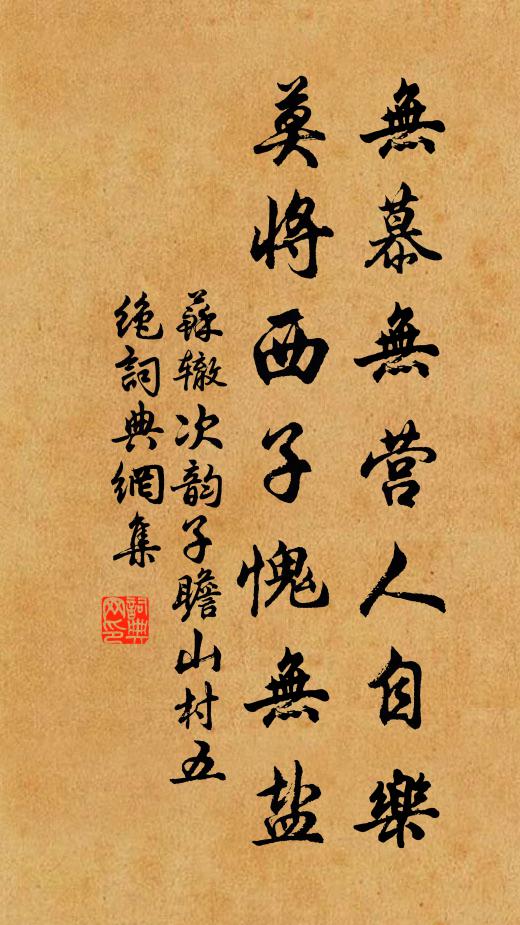 無慕無营人自樂
莫將西子愧無盐
蘇辙次韵子瞻山村五
绝詞典網集
詞典网印